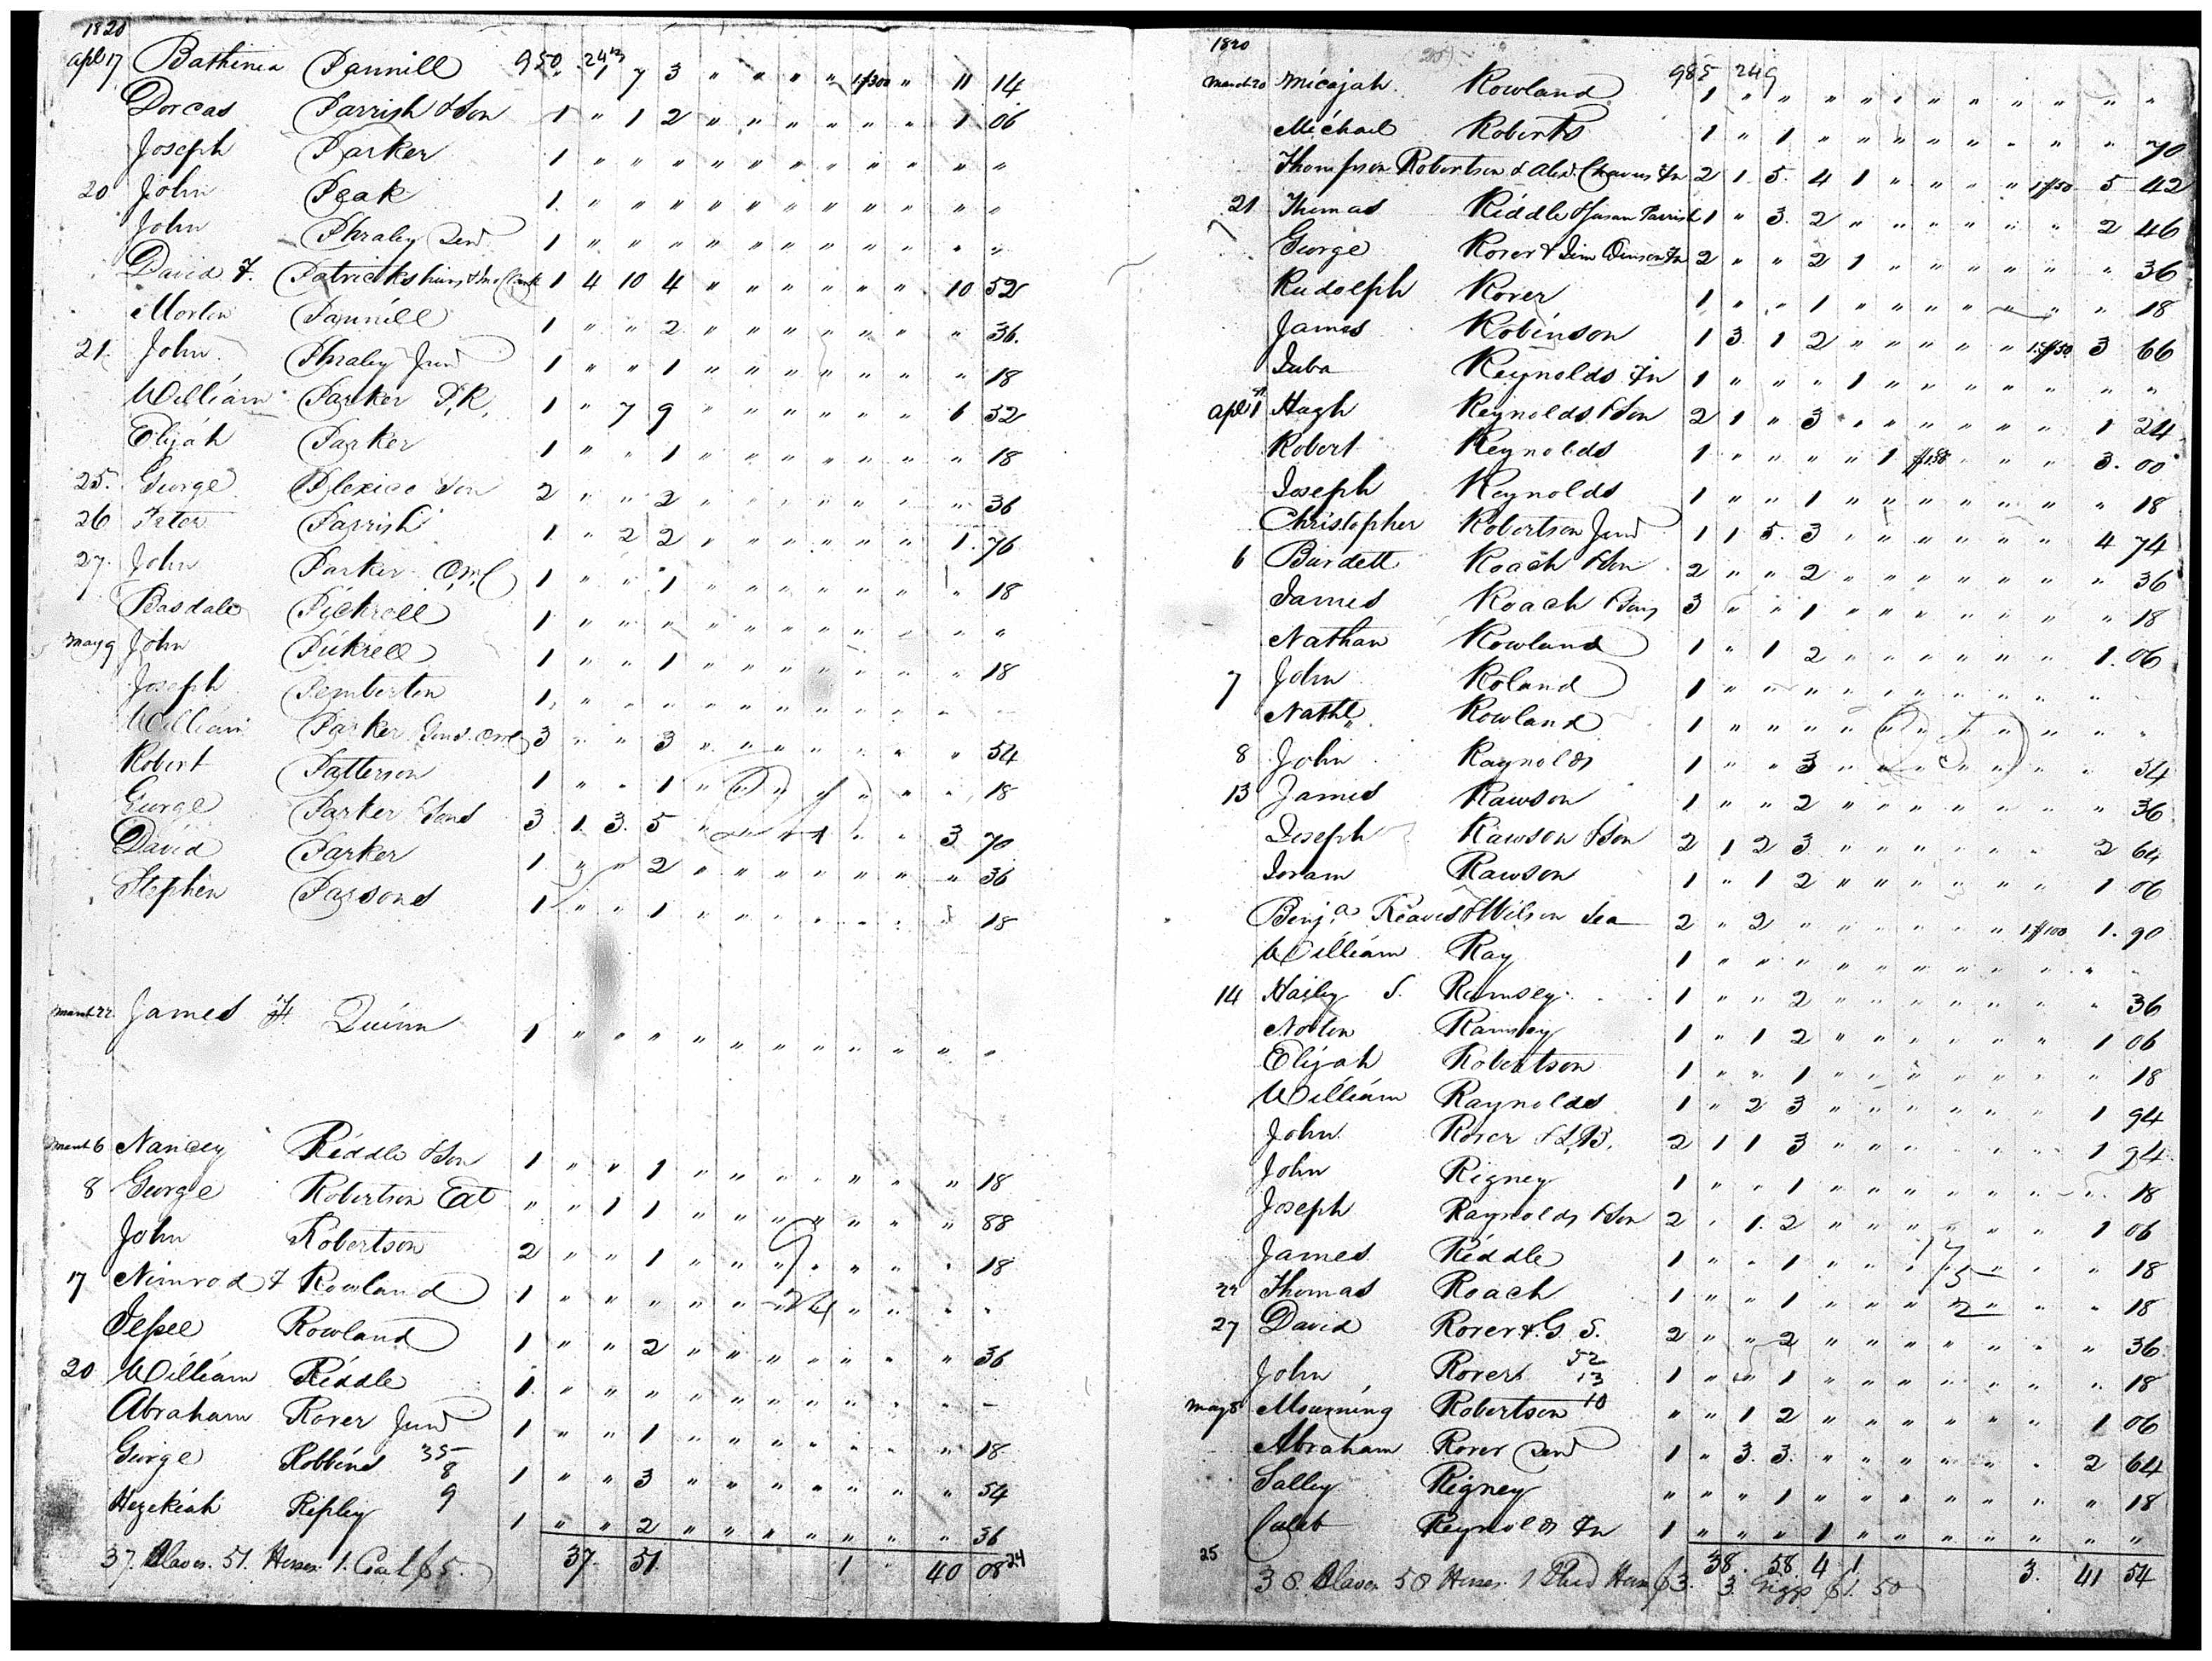 1820
Apl 17 Bathinia Pannill 950 24 1 7 3 " " " " 1 $300 " 11 14
Dorcas Parrish & Son 1 " 1 2 " " " " " " 1 06
Joseph Parker 1 " " " " " " " " " " "
20 John Peak 1 " " " " " " " " " " "
John Phraley Senr 1 " " " " " " " " " " "
David F. Patrick 1 4 10 4 " " " " " " 10 52
Morten Pannill 1 " " 2 " " " " " " " 36
21 John Phraley Junr 1 " " 1 " " " " " " " 18
William Parker P,R, 1 " 7 9 " " " " " " 6 32
Elijah Parker 1 " " 1 " " " " " " " 18
25. George Plexico & Son 2 " " 2 " " " " " " " 36
26 Peter Parrish 1 " 2 2 " " " " " " 1. 76
27. John Parker C,M,C 1 " " 1 " " " " " " " 18
Basdale Pickrell 1 " " " " " " " " " " "
May 9 John Pickrell 1 " " 1 " " " " " " " 18
Joseph Pemberton 1 " " " " " " " " " " "
William Parker Sens. 3 " " 3 " " " " " " " 54
Robert Patterson 1 " " 1 " " " " " " " 18
George Parker & Sons 3 1 3 5 " " " " " " 3 70
David Parker 1 " " 2 " " " " " " " 36
Stephen Parsons 1 " " 1 " " " " " " " 18
March 22 James Quinn 1 " " " " " " " " " " "
March 6 Nancey Riddle & Son 1 " " 1 " " " " " " " 18
8 George Robertson Est " " 1 1 " " " " " " " 88
John Robertson 2 " " 1 " " " " " " " 18
17 Nimrod F Rowland 1 " " " " " " " " " " "
Jessee Rowland 1 " " 2 " " " " " " " 36
20 William Riddle 1 " " " " " " " " " " "
Abraham Rorer Junr 1 " " 1 " " " " " " " 18
George Robbins 35 8 1 " " 3 " " " " " " " 54
Hezekiah Ripley 9 1 " " 2 " " " " " " " 36
37. 51. 1 " 40 08 24
37. Slaves. 51. Horses. 1. Coach $5.
1820
March 20 Micajah Rowland 985 249 1 " " " " " " " " " " "
Michael Roberts 1 " 1 " " " " " " " " 70
Thompson Robertson & Alexr Chavus Fn 2 1 5 4 1 " " " " 1 $50 5 42
21 Thomas Riddle & Susan Parrish 1 " 3 2 " " " " " " 2 46
George Rorer & Fn 2 " " 2 1 " " " " " " 36
Rudolph Rorer 1 " " 1 " " " " " " " 18
James Robinson 1 3 1 2 " " " " " 1 $50 3 66
Juba Reynolds Fn 1 " " " 1 " " " " " " "
Apl 1 Hugh Reynolds & Son 2 1 " 3 " " " " " " 1 24
Robert Reynolds 1 " " " " " 1 " " " 3. 00
Joseph Reynolds 1 " " 1 " " " " " " " 18
Christopher Robertson Junr 1 1 5 3 " " " " " " 4 74
6 Burdett Roach & Son 2 " " 2 " " " " " " " 36
James Roach & Sons 3 " " 1 " " " " " " " 18
Nathan Rowland 1 " 1 2 " " " " " " 1. 06
7 John Roland 1 " " " " " " " " " " "
Nathl Rowland 1 " " " " " " " " " " "
8 John Raynolds 1 " " 3 " " " " " " " 54
13 James Rawson 1 " " 2 " " " " " " " 36
Joseph Rawson & Son 2 1 2 3 " " " " " " 2 64
Joram Rawson 1 " 1 2 " " " " " " 1 06
Benja Reaves & Wilson Lea 2 " 2 " " " " " " 1 $100 1. 90
William Ray 1 " " " " " " " " " " "
14 Haily S. Ramsey 1 " " 2 " " " " " " " 36
Noten Ramsey 1 " 1 2 " " " " " " 1 06
Elijah Robertson 1 " " 1 " " " " " " " 18
William Raynolds 1 " 2 3 " " " " " " 1 94
John Rorer 2 1 1 3 " " " " " " 1 94
John Rigney 1 " " 1 " " " " " " " 18
Joseph Raynolds & Son 2 " 1 2 " " " " " " 1 06
James Riddle 1 " " 1 " " " " " " " 18
22 Thomas Roach 1 " " 1 " " " " " " " 18
27 David Rorer & G. S. 2 " " 2 " " " " " " " 36
John Rorer 52 13 1 " " 1 " " " " " " " 18
May 8 Mourning Robertson 10 " " 1 2 " " " " " " 1 06
Abraham Rorer Senr 1 " 3 3 " " " " " " 2 64
Salley Rigney " " " 1 " " " " " " " 18
Caleb Reynolds Fn 1 " " " 1 " " " " " " "
25 38. 58. 4 1 3. 41 54
38. Slaves 58 Horses. 1 Stud Horse $3. 3. Giggs $1. 50